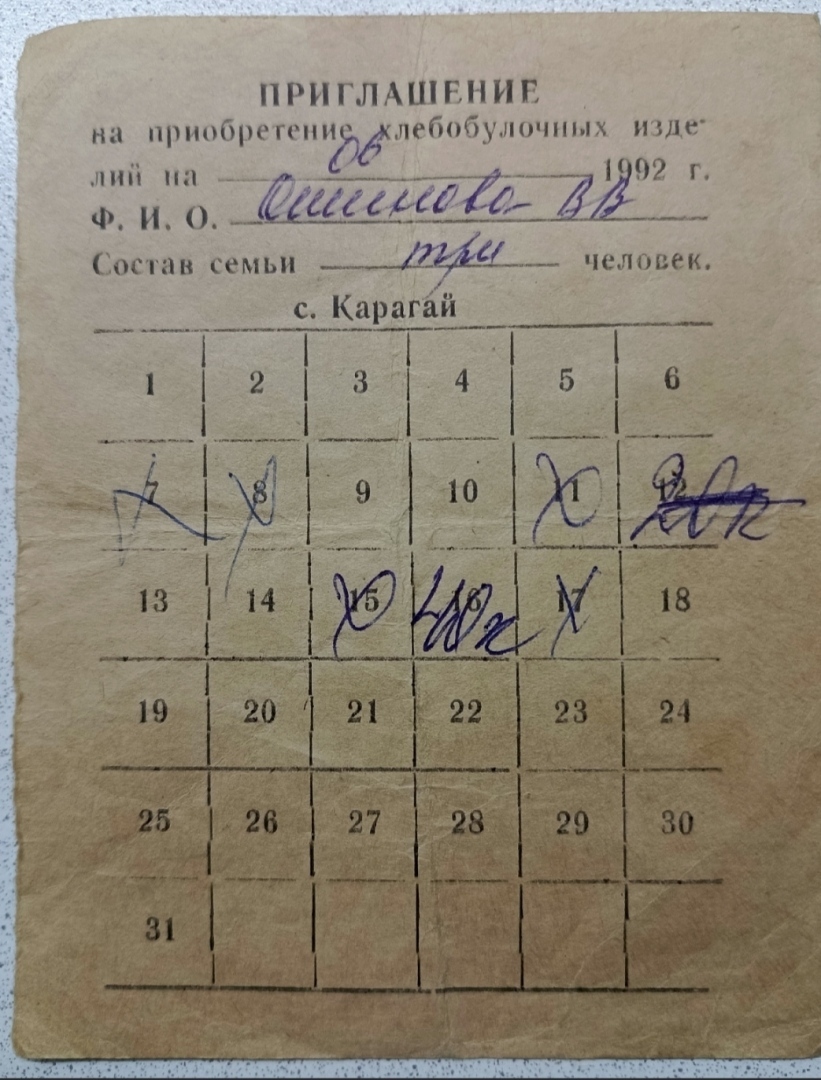 ПРИГЛАШЕНИЕ
на приобретение хлебобулочных изде-
лий на 06 1992 г.
Ф. И. О. ВВ
Состав семьи три человек.
с. Карагай
1 2 3 4 5 6
7 8 9 10 11 12 20к
13 14 15 16 40к 17 18
19 20 21 22 23 24
25 26 27 28 29 30
31